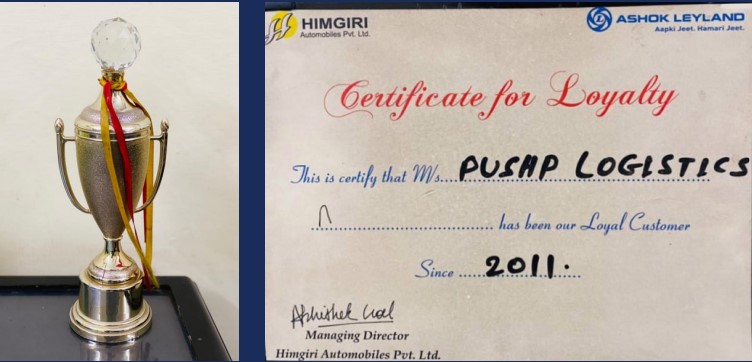 HIMGIRI
Automobiles Pvt. Ltd.
ASHOK LEYLAND
Aapki Jeet. Hamari Jeet.
Certificate for Loyalty
This is certify that M/s....PUSHP LOGISTICS
has been our Loyal Customer
Since ....2011.
Managing Director
Himgiri Automobiles Pvt. Ltd.